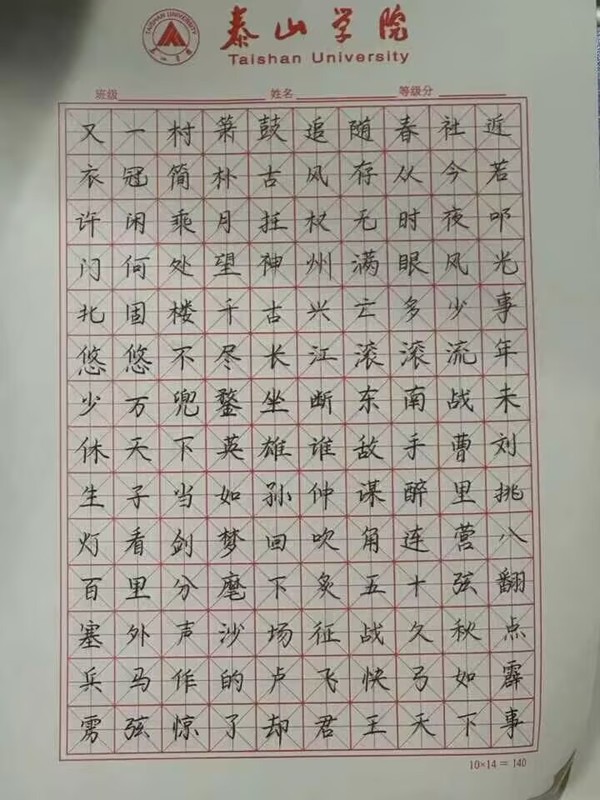 TAISHAN UNIVERSITY
泰山学院
Taishan University
班级 姓名 等级分
又一村箫鼓追随春社近
衣冠简朴古风存从今若
许闲乘月拄杖无时夜叩
门何处望神州满眼风光
北固楼千古兴亡多少事
悠悠不尽长江滚滚流年
少万兜鍪坐断东南战未
休天下英雄谁敌手曹刘
生子当如孙仲谋醉里挑
灯看剑梦回吹角连营八
百里分麾下炙五十弦翻
塞外声沙场征战久秋点
兵马作的卢飞快弓如霹
雳弦惊了却君王天下事
10×14＝140